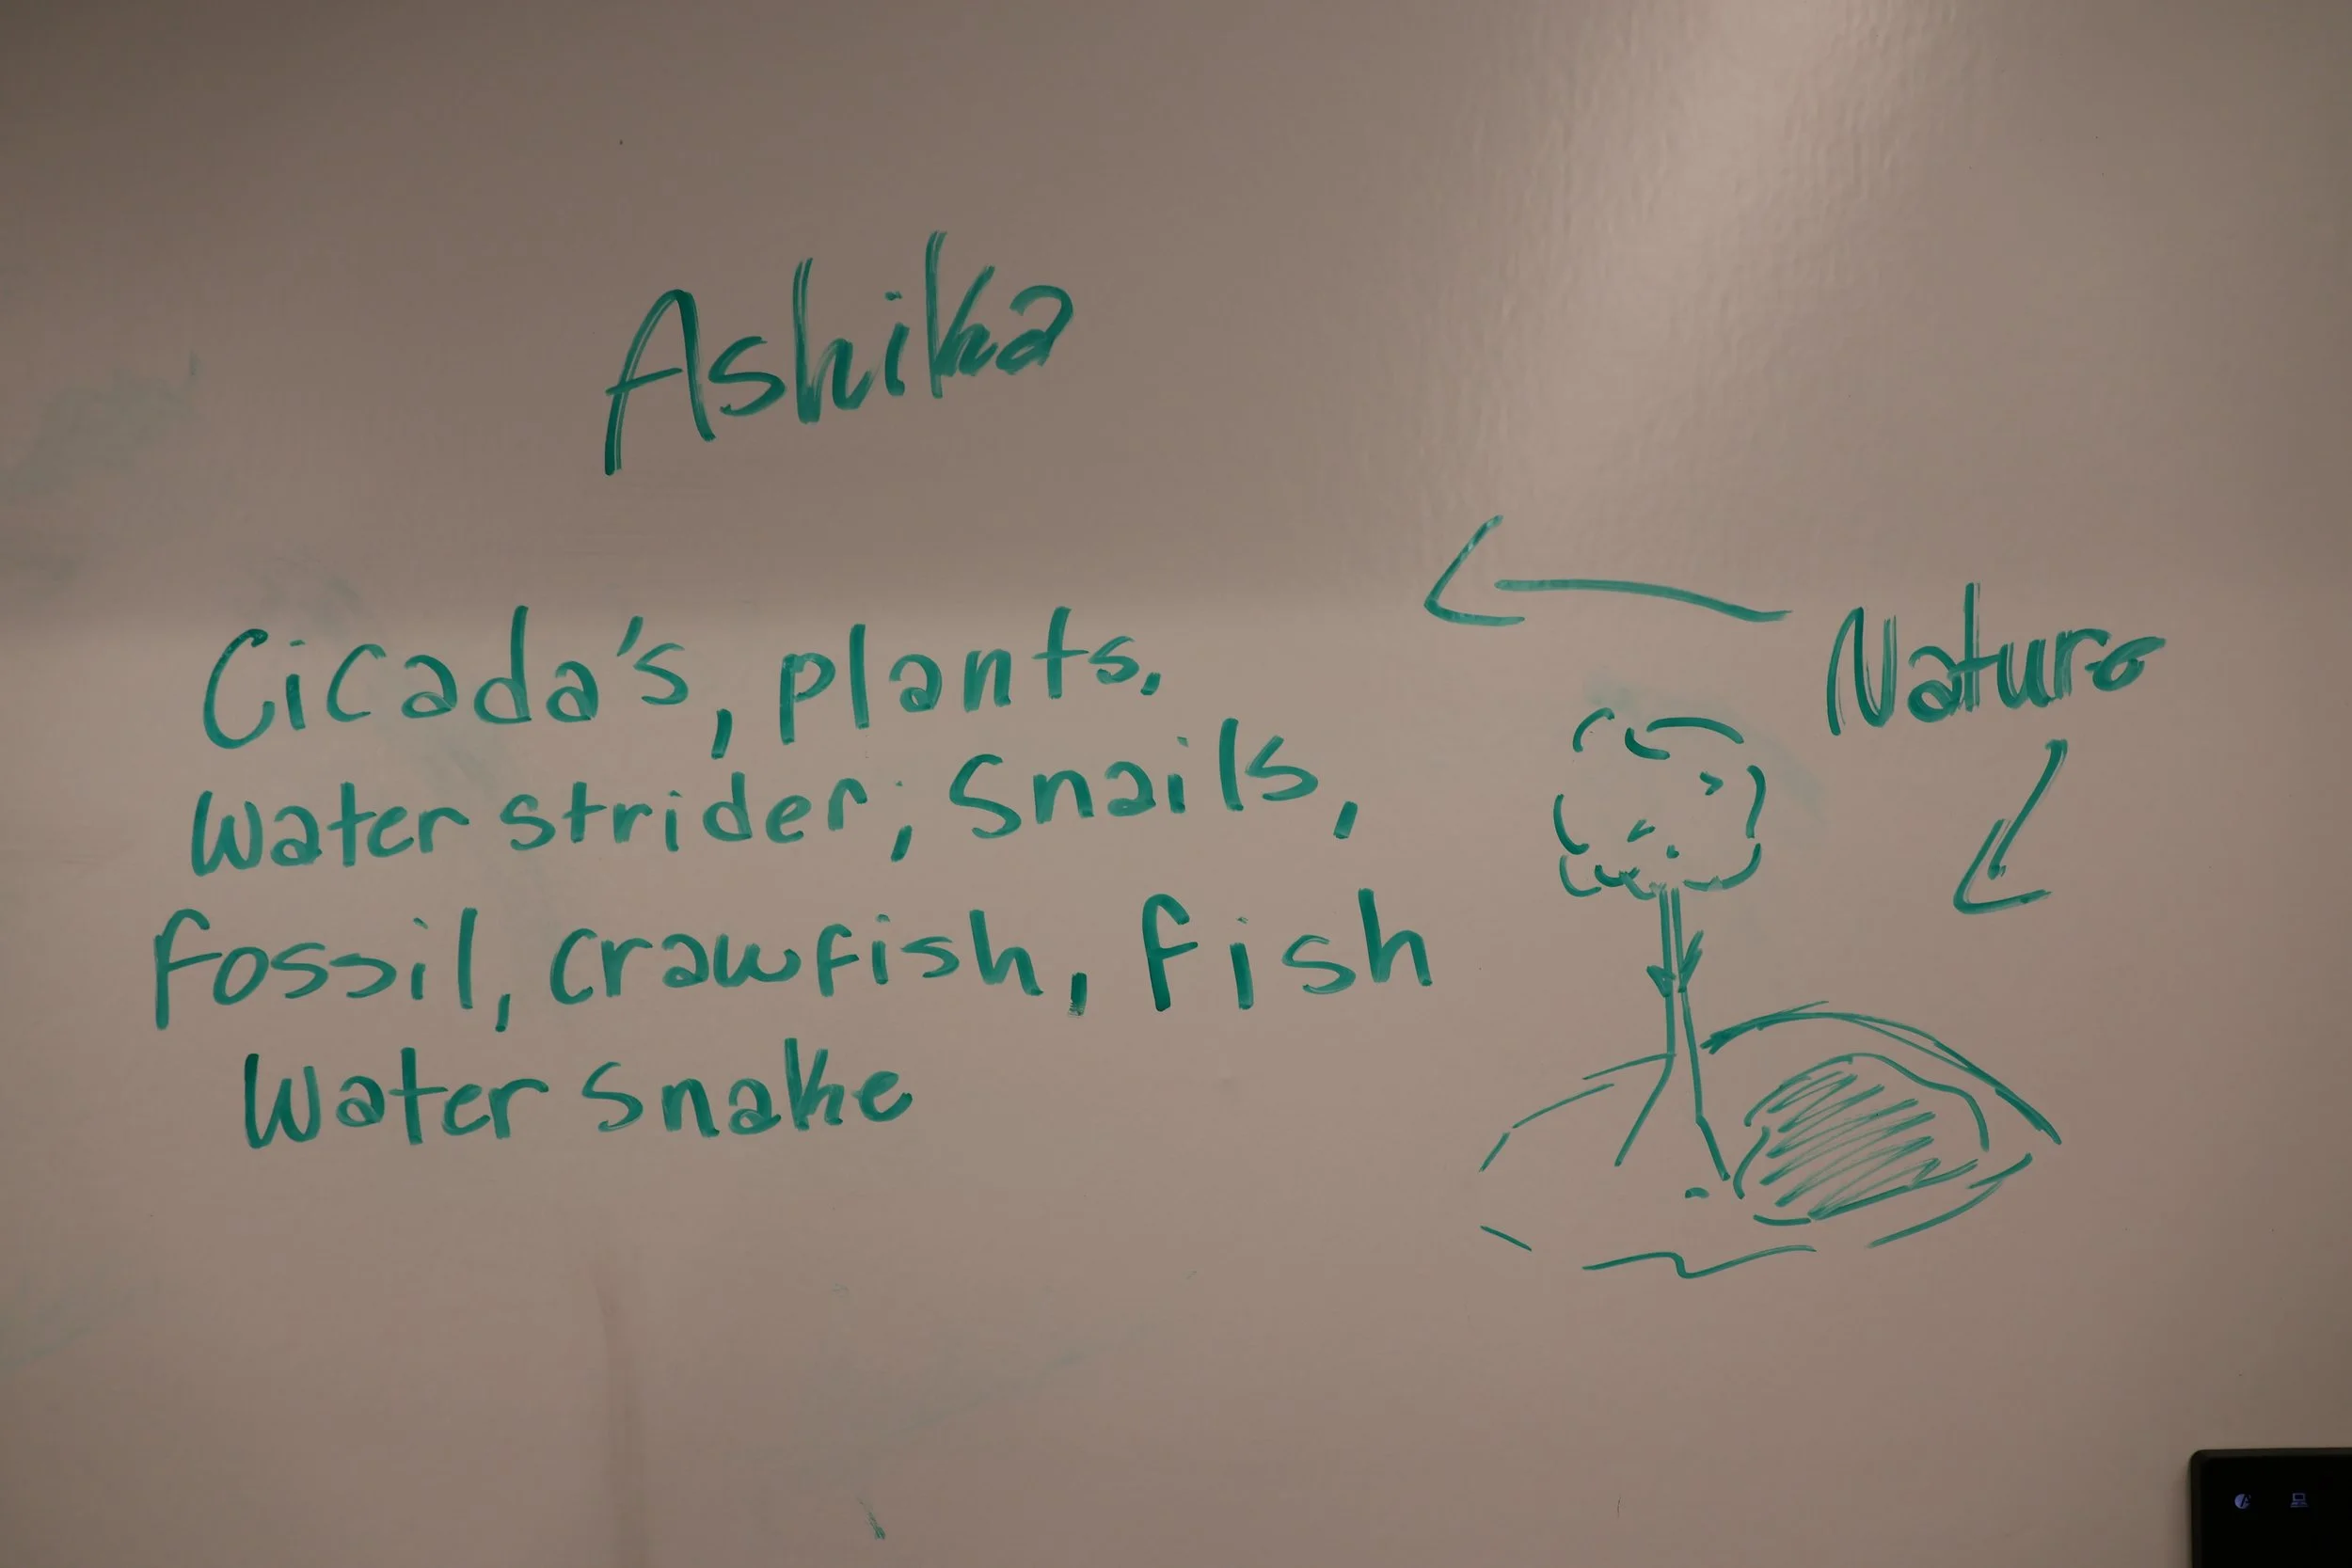 Ashika
Nature
Cicada's, plants,
Water strider, Snails,
fossil, crawfish, fish
Water snake